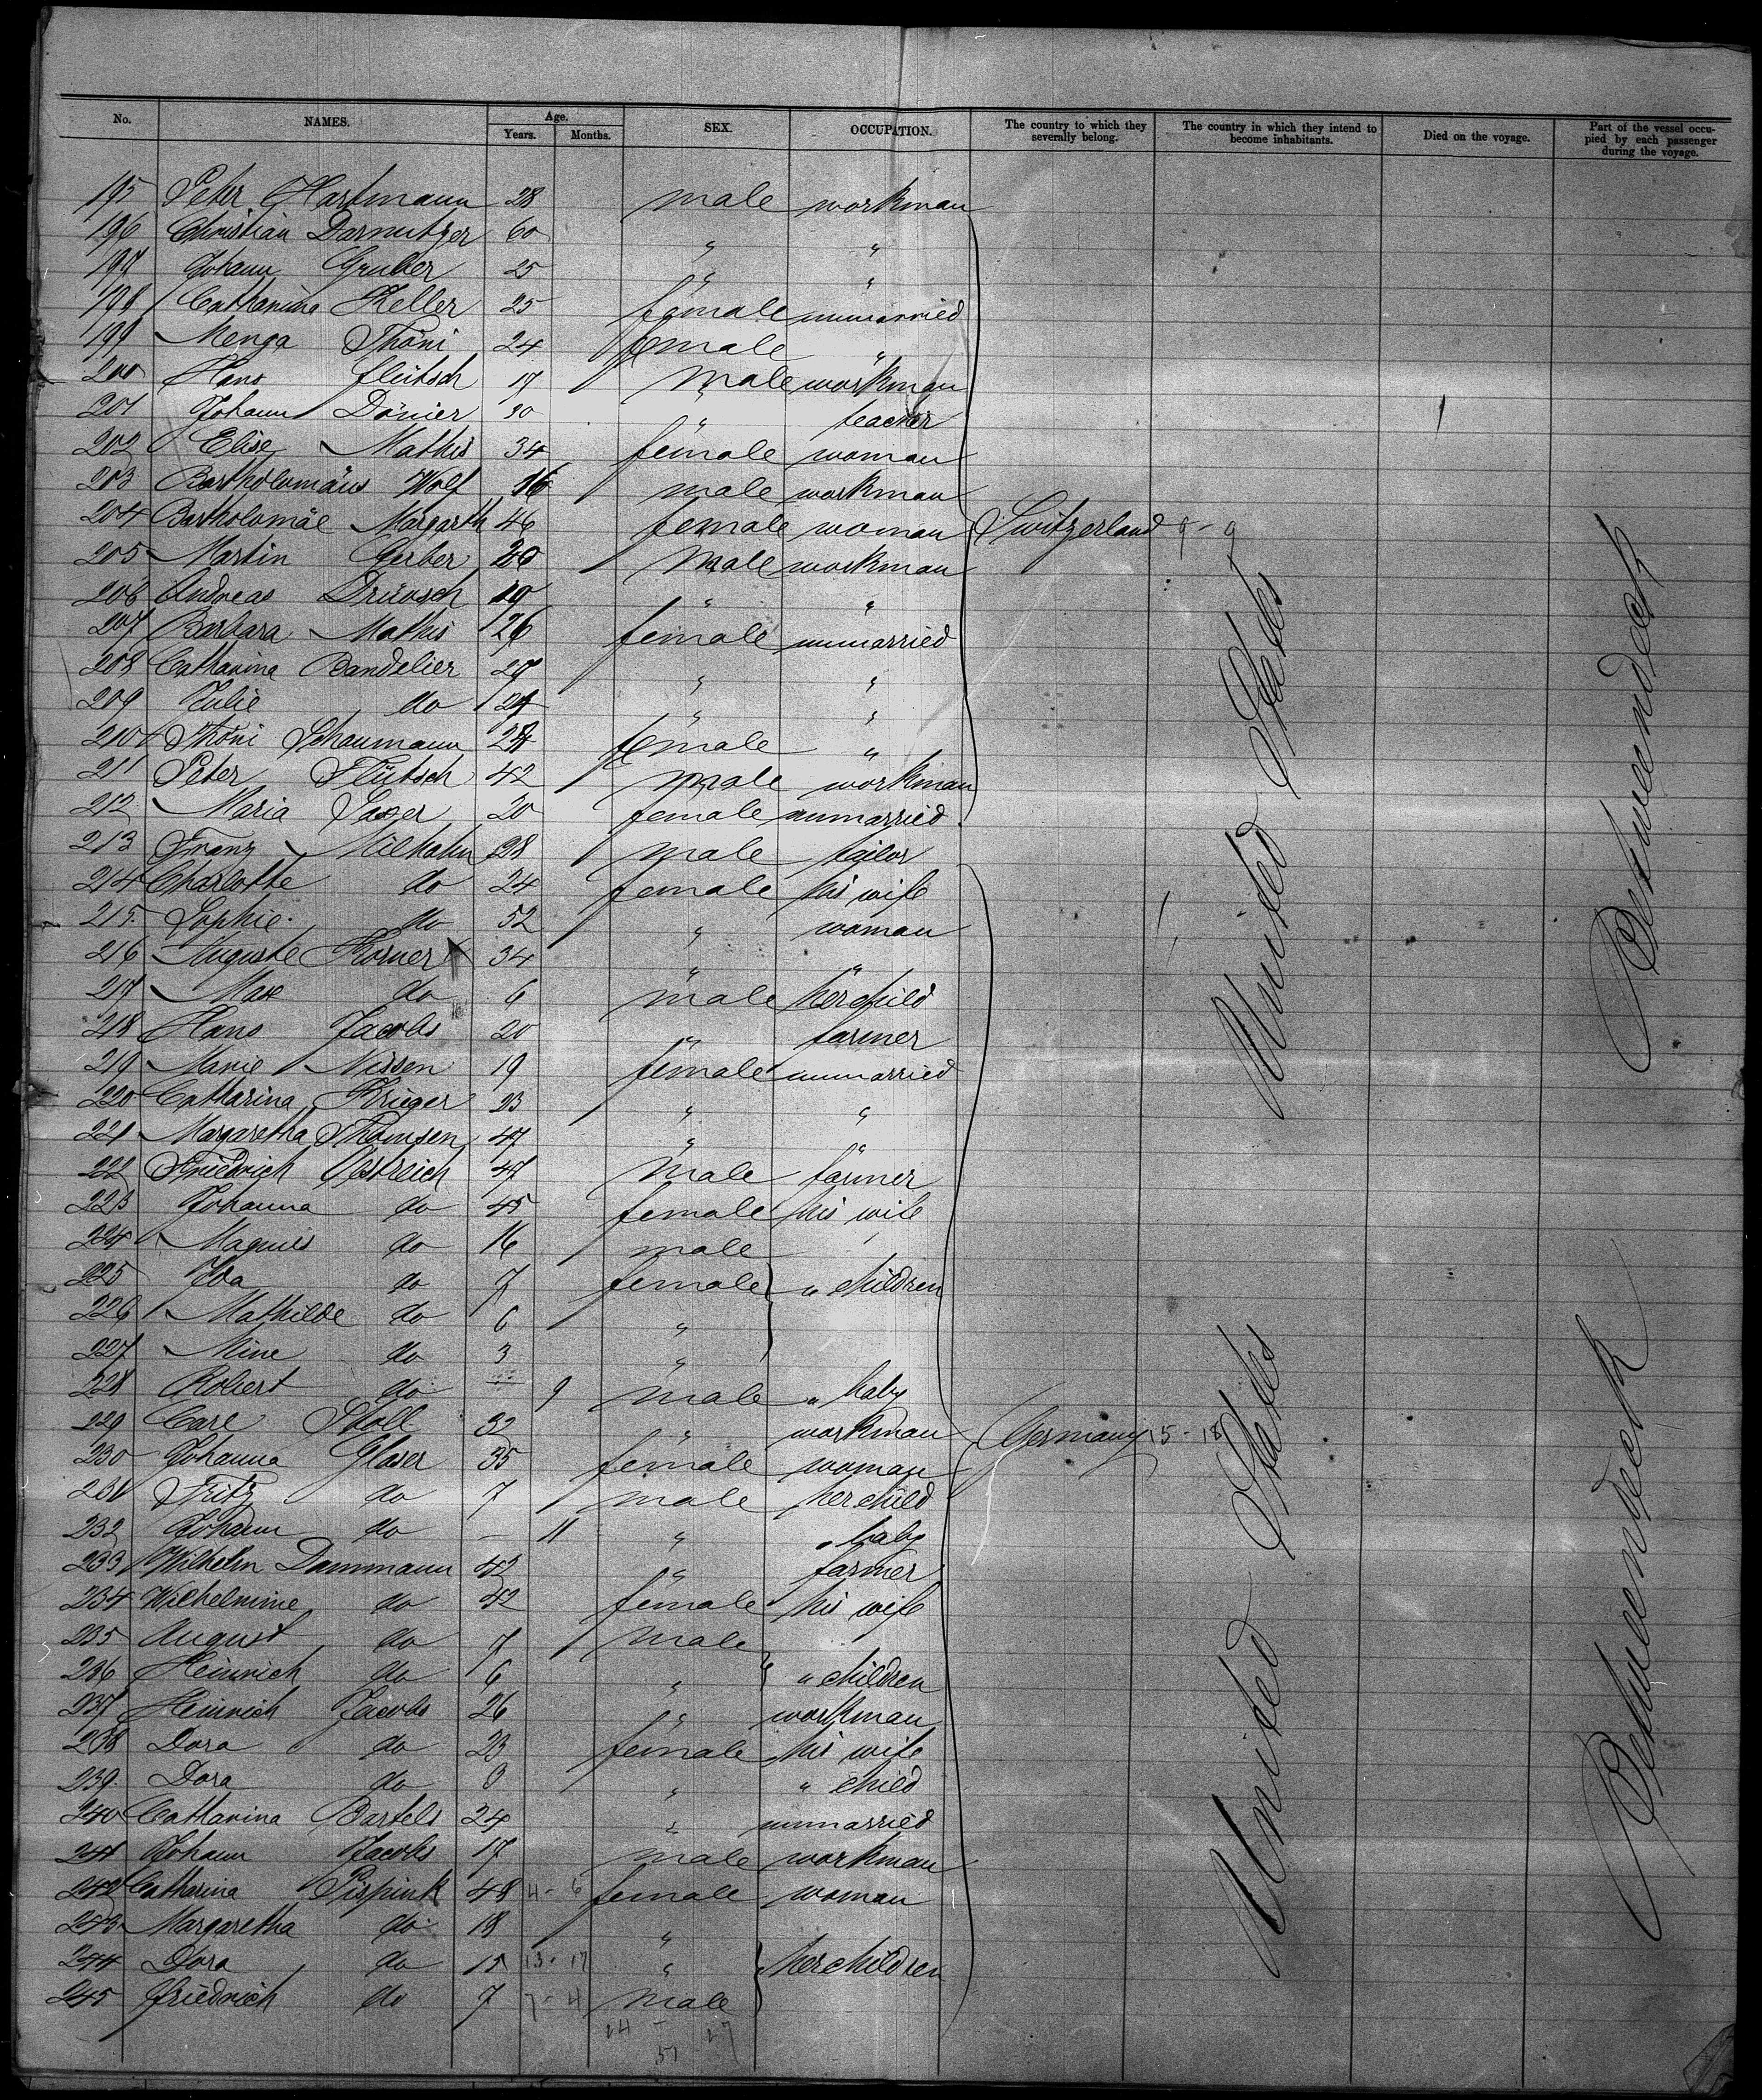 No. NAMES. Age. Years. Months. SEX. OCCUPATION. The country to which they severally belong. The country in which they intend to become inhabitants. Died on the voyage. Part of the vessel occupied by each passenger during the voyage.
195 Peter Hartmann 28 male workman
196 Christian Darnutzer 60 " "
197 Johann Gruber 25 " "
198 Catharina Keller 25 female unmarried
199 Menga Thöni 24 female "
200 Hans Flütsch 17 male workman
201 Johann Dönier 30 " teacher
202 Elise Mathis 34 female woman
203 Bartholomäus Wolf 16 male workman
204 Bartholomäe Margarth 46 female woman Switzerland 9 - 9
205 Martin Gerber 20 male workman
206 Andreas 19 " "
207 Barbara Mathis 26 female unmarried
208 Catharina Bandelier 27 " "
209 Julie do 24 " "
210 Thöni Schaumann 24 female "
211 Peter Flütsch 42 male workman
212 Maria 20 female unmarried
213 Franz Milhahn 28 male tailor
214 Charlotte do 24 female his wife
215 Sophie do 52 " woman
216 Auguste Korner 34 " "
217 Max do 6 male her child
218 Hans Jacobs 20 " farmer
219 Marie Nissen 19 female unmarried
220 Catharina Krieger 23 " "
221 Margaretha Thomsen 47 " "
222 Friedrich Oestreich 47 male farmer
223 Johanna do 45 female his wife
224 Magnus do 16 male
225 Ida do 7 female " children
226 Mathilde do 6 "
227 Mine do 3 "
228 Robert do 9 male " baby
229 Carl Stoll 32 " workman Germany 15 - 18
230 Johanna Glaser 35 female woman
231 Fritz do 7 male her child
232 Johann do — 11 " " baby
233 Wilhelm Dammann 42 " farmer
234 Wilhelmine do 42 female his wife
235 August do 7 male
236 Heinrich do 6 " " children
237 Heinrich Jacobs 26 " workman
238 Dora do 23 female his wife
239 Dora do 3 " " child
240 Catharina Bartels 24 " unmarried
241 Johann Jacobs 17 male workman
242 Catharina Pispink 48 4 - 6 female woman
243 Margaretha do 18 "
244 Dora do 15 13 - 17 " her children
245 Friedrich do 7 7 - 4 male
24 - 27
51
United States
United States
Betweendeck
Betweendeck